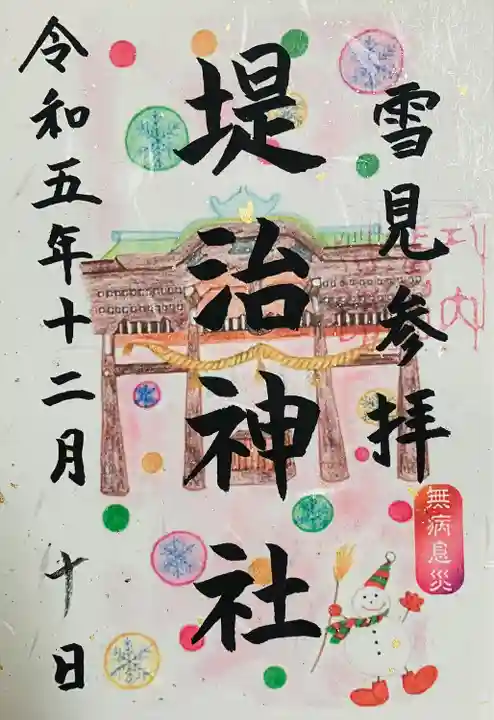 雪見参拝
無病息災
堤治神社
令和五年十二月 十日